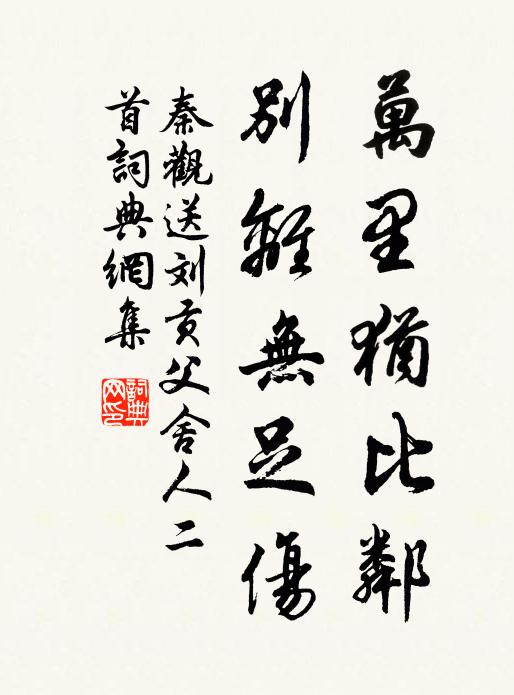 萬里猶比鄰
別離無足傷
秦觀送刘贡父舍人二
首詞典網集
詞典
网印